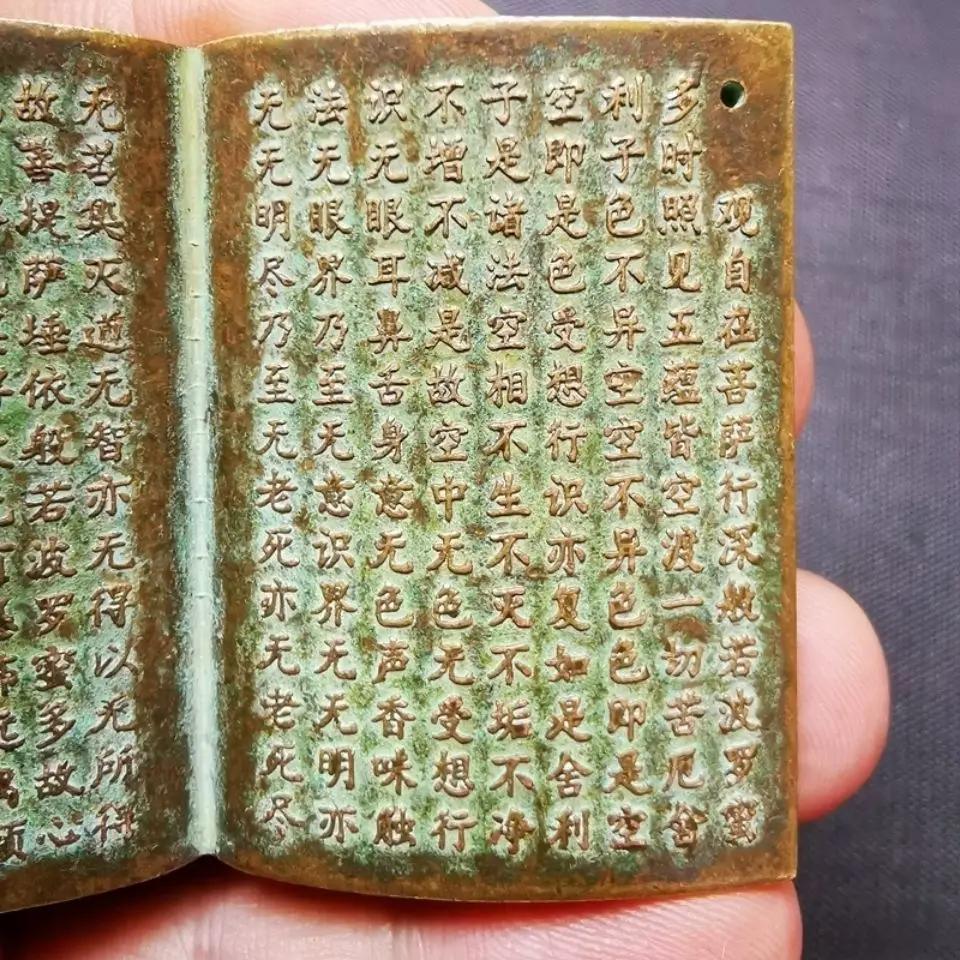 观自在菩萨行深般若波罗蜜
多时照见五蕴皆空渡一切苦厄舍
利子色不异空空不异色色即是空
空即是色受想行识亦复如是舍利
子是诸法空相不生不灭不垢不净
不增不减是故空中无色无受想行
识无眼耳鼻舌身意无色声香味触
法无眼界乃至无意识界无无明亦
无无明尽乃至无老死亦无老死尽
无苦集灭道无智亦无得以无所得
故菩提萨埵依般若波罗蜜多故心